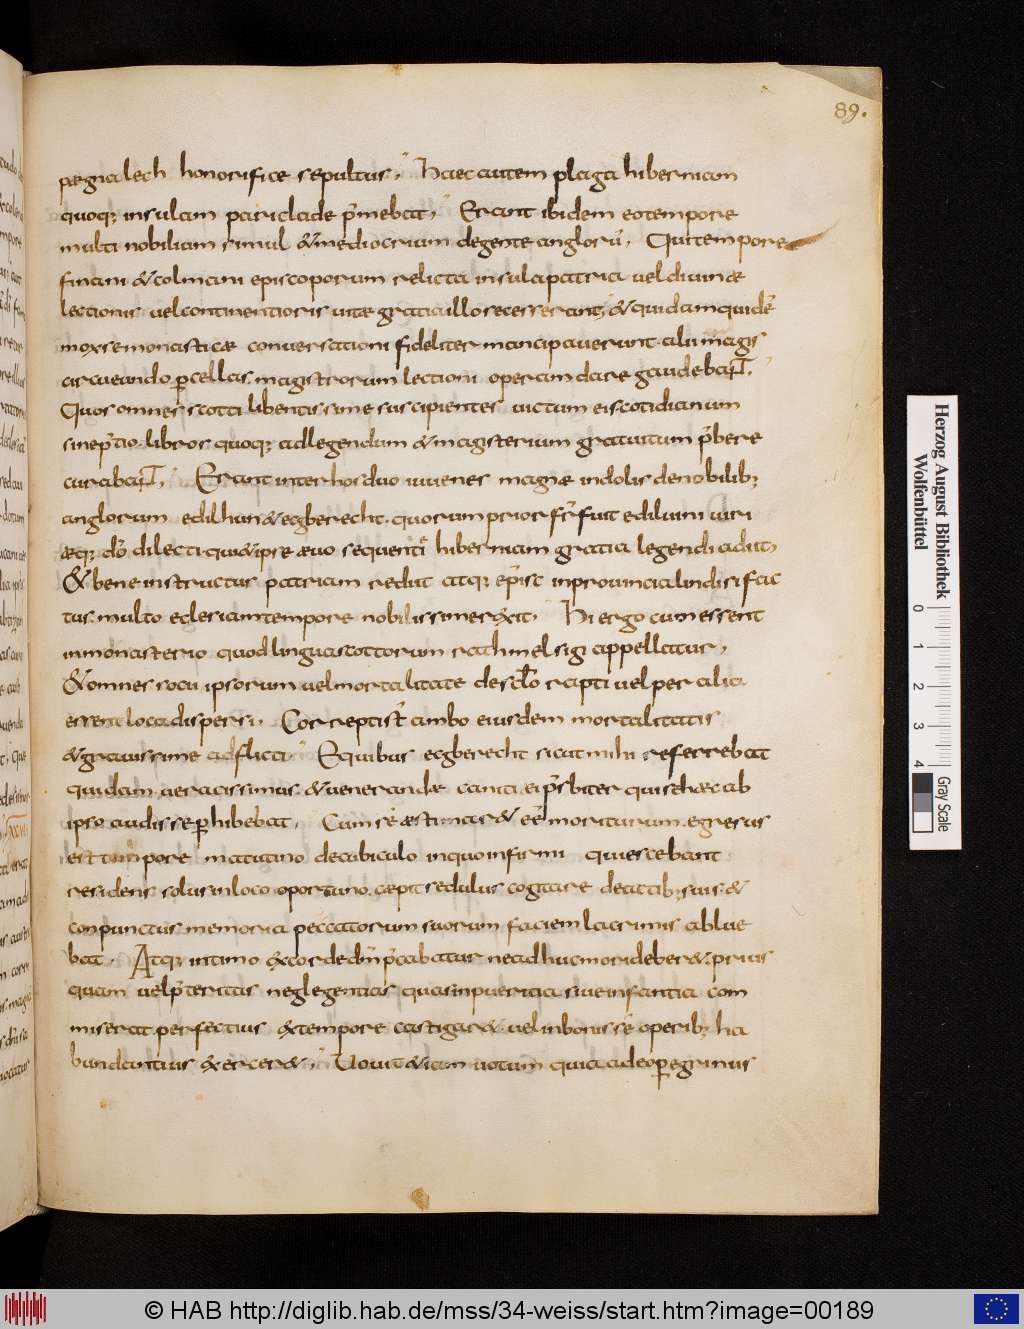 89.
pægnalech honorifice sepultus; Haec autem plaga hiberniam
quoq; insulam pari clade p̄mebat; Erant ibidem eo tempore
multi nobilium simul & mediocrium de gente anglorū, Qui tempore
finani & colmani episcoporum relicta insula patria uel diuinæ
lectionis uel continentioris uitæ gratia illo secesserant; & quidam quidē
mox se monasticæ conuersationi fideliter mancipauerunt. alii magis
circueundo ꝑ cellas magistrorum lectioni operam dare gaudebant;
Quos omnes scotti libentissime suscipientes uictum eis cotidianum
sine p̄tio libros quoq; ad legendum & magisterium gratuitum p̄bere
curabant; Erant inter hos duo iuuenes magnæ indolis de nobilib;
anglorum edilhun & ecgberecht. quorum prior fr̄ fuit ediluini uiri
æq; dō dilecti qui & ipse æuo sequenti hiberniam gratia legendi adiit,
& bene instructus patriam rediit atq; ep̄isc in prouincia lindisi fac
tus. multo eclesiam tempore nobilissime rexit; Hi ergo cum essent
in monasterio quod lingua scottorum rathmelsigi appellatur,
& omnes socii ipsorum uel mortalitate de sclo rapti uel per alia
essent loca dispersi. Correpti st̄ ambo eiusdem mortalitatis
& grauissime adflicti; E quibus ecgberecht sicut mihi referrebat
quidam ueracissimus & uenerandæ canitiei p̄sbiter qui se hæc ab
ipso audisse ꝑhibebat, Cum se æstimar& eē moriturum. egressus
est tempore matutino de cubiculo in quo infirmi quiescebant
residens solus in loco oportuno. cæpit sedulus cogitare de actib; suis. &
conpunctus memoria peccatorum suorum faciem lacrimis ablue
bat. Atq; intimo ex corde dm̄ p̄cabatur ne adhuc mori deber&. prius
quam uel p̄teritas neglegentias quas in pueritia siue in fantia com
miserat perfectius ex tempore castigar&. uel in bonis se operib; ha
bundantius exercer&; Uouit & iam uotum quia adeo ꝑegrinus
Herzog August Bibliothek
Wolfenbüttel
0 1 2 3 4
Gray Scale
© HAB http://diglib.hab.de/mss/34-weiss/start.htm?image=00189